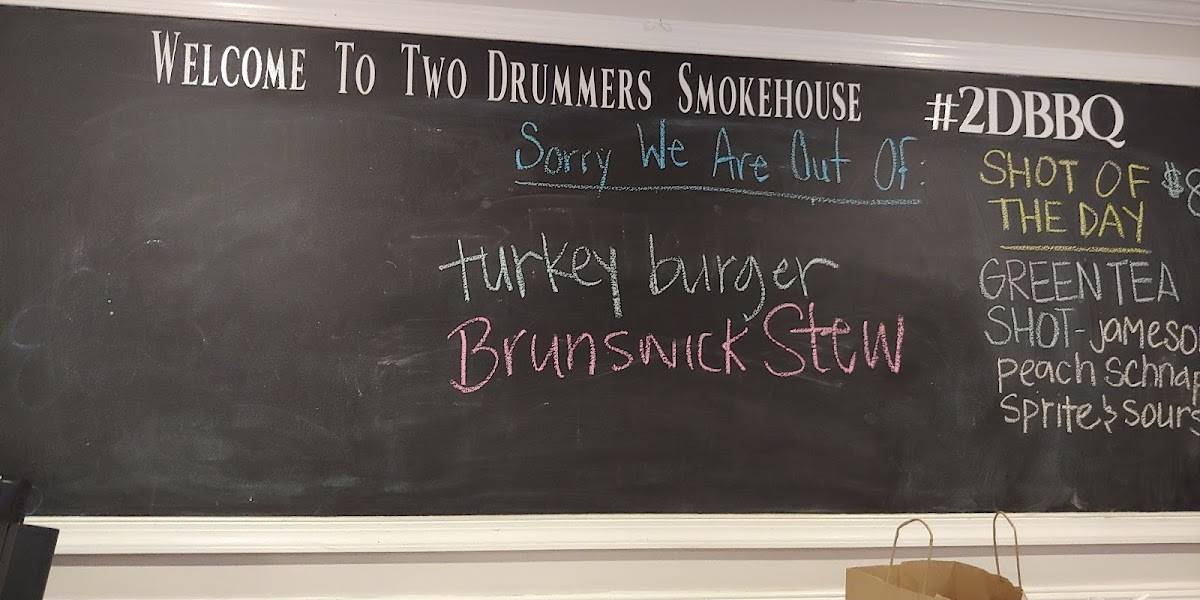 WELCOME TO TWO DRUMMERS SMOKEHOUSE #2DBBQ
Sorry We Are Out Of:
turkey burger
Brunswick Stew
SHOT OF $8
THE DAY
GREEN TEA
SHOT-Jameso
peach Schnap
Sprite & Sours